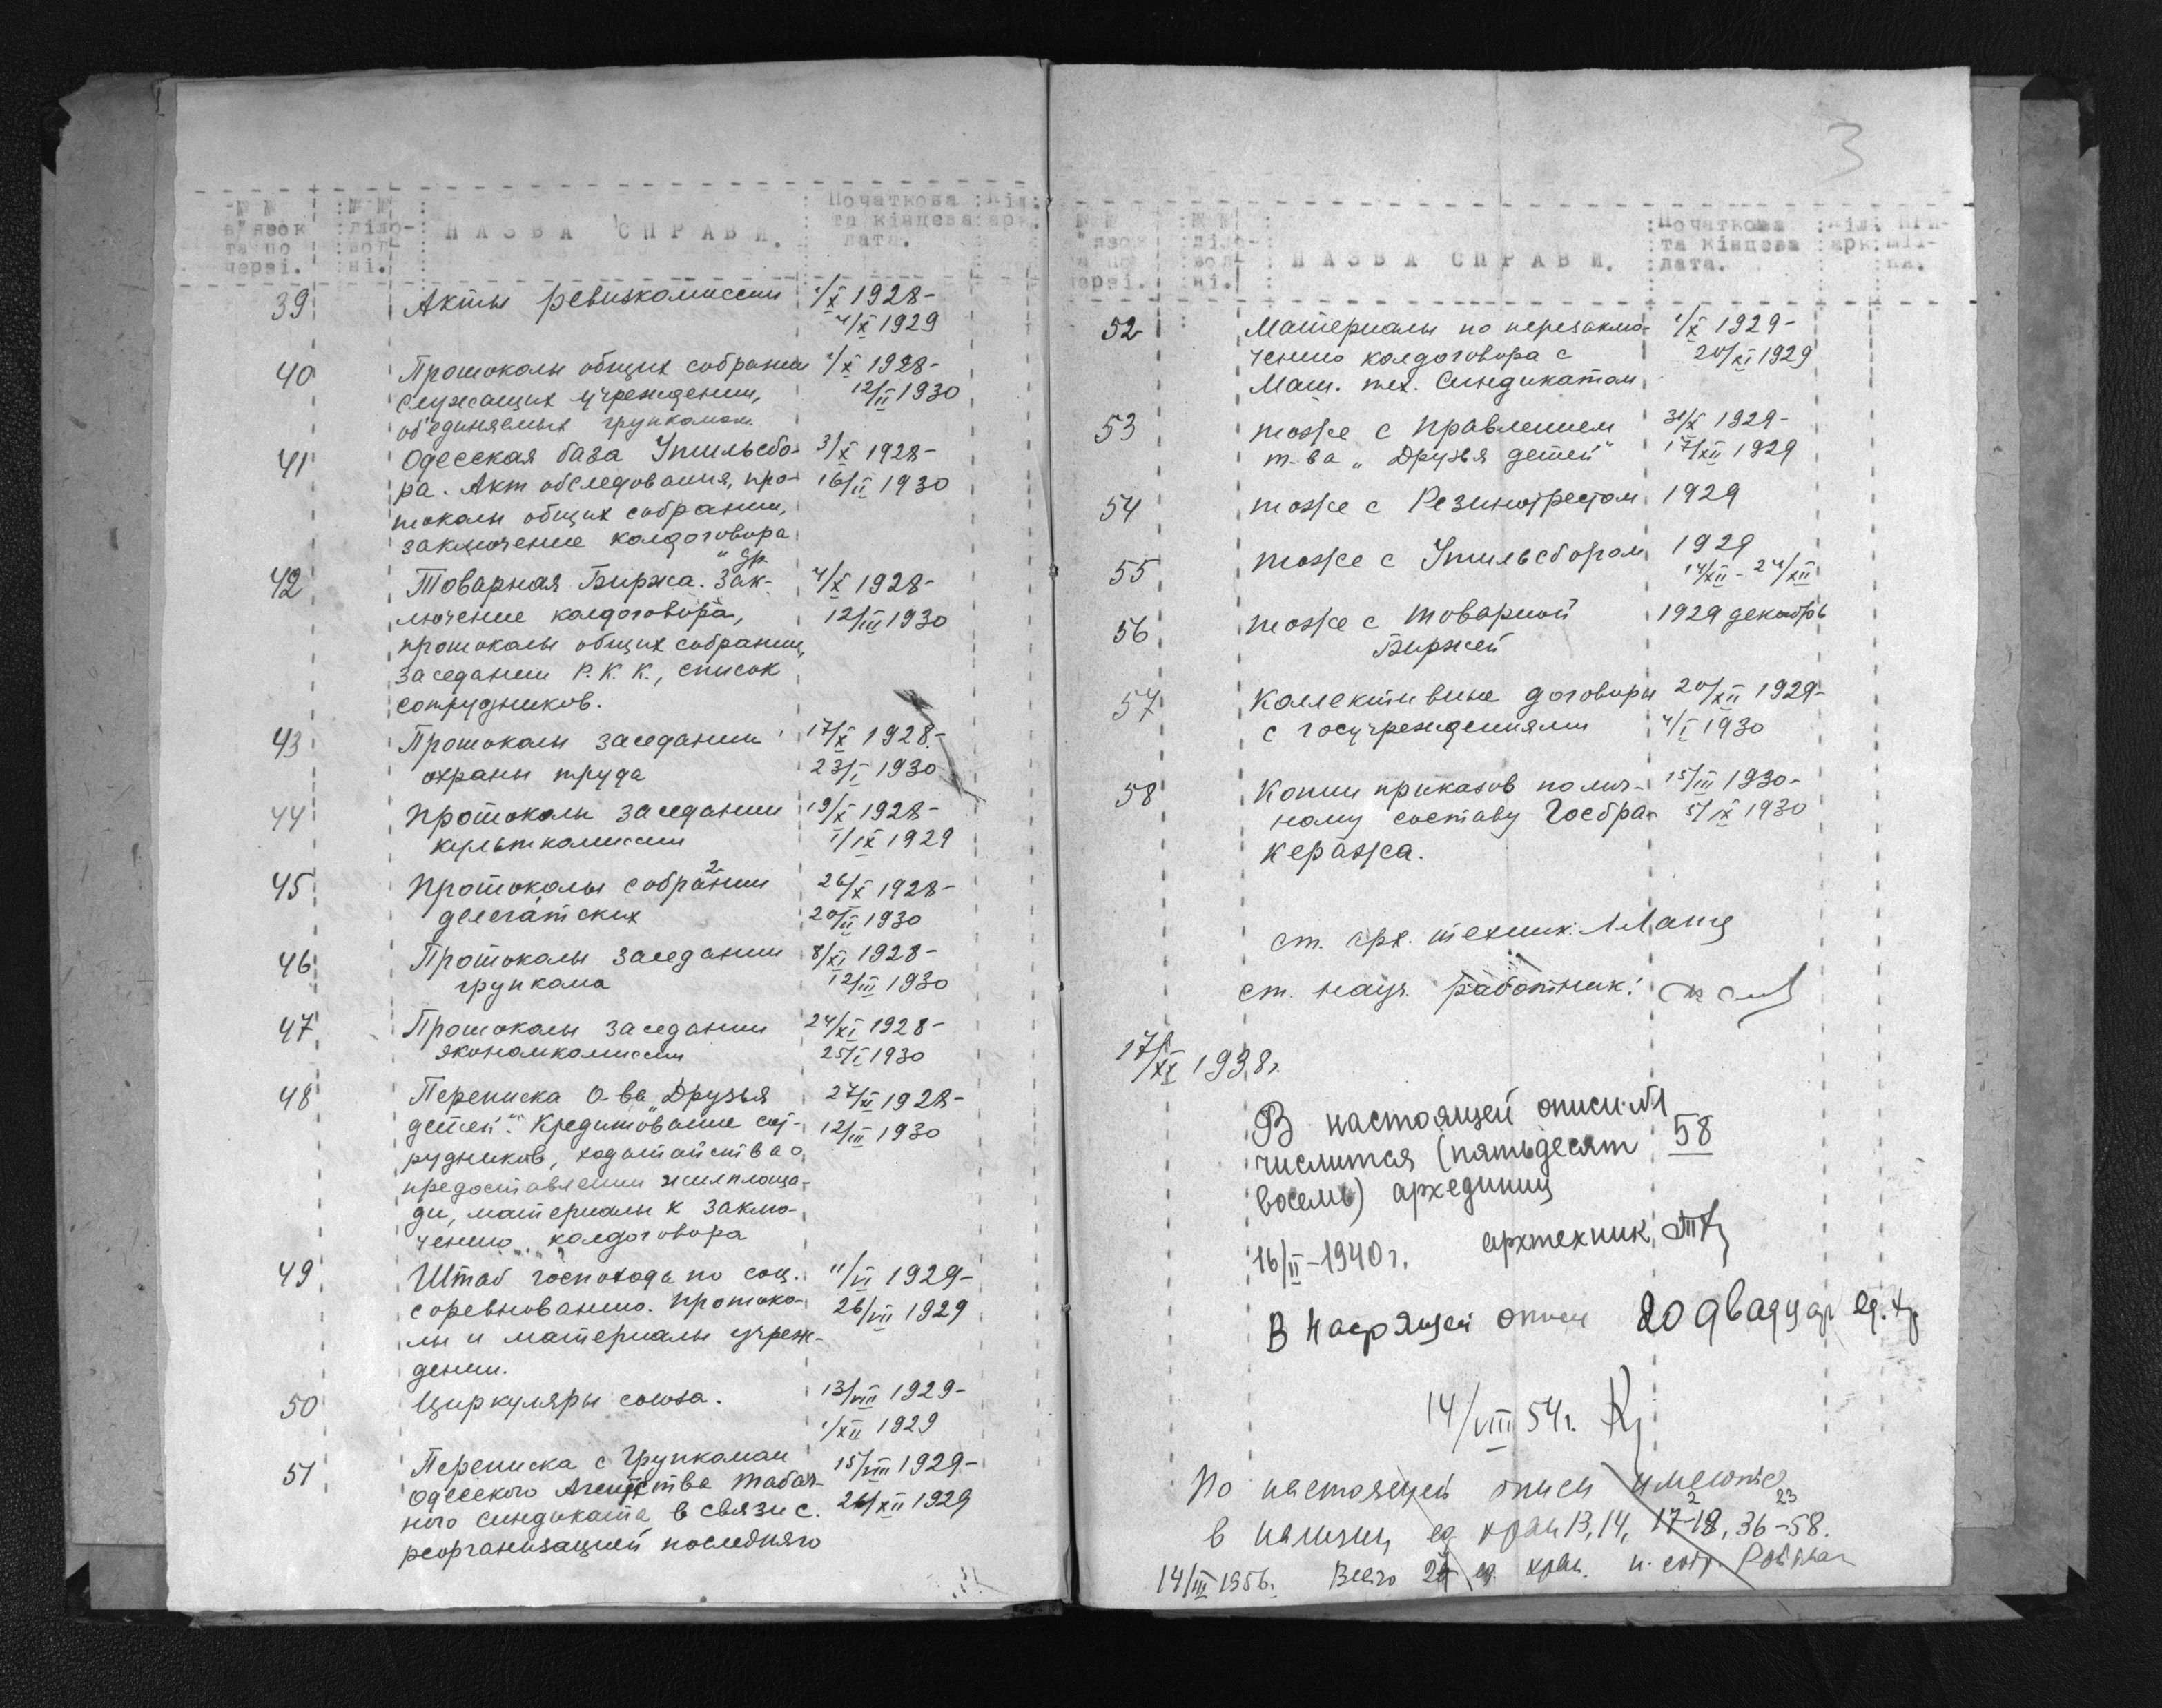 № №
в"язок
та по
черзі.
№ №
діло-
вод
ні.
НАЗВА СПРАВИ.
Початкова
та кінцева
дата.
кіл.
арк.
39 Акты ревизкомиссии 1/X 1928-
4/X 1929
40 Протоколы общих собрании 1/X 1928-
служащих учреждении, 12/II 1930
об'единяемых групкомом.
41 Одесская база Утильсбо- 3/X 1928-
ра. Акт обследования, про- 16/II 1930
токолы общих собрании,
заключение колдоговора
и др.
42 Товарная Биржа. Зак- 4/X 1928-
лючение колдоговора, 12/III 1930
протоколы общих собрании,
заседании Р.К.К., список
сотрудников.
43 Протоколы заседании 17/X 1928-
охраны труда 23/I 1930
44 Протоколы заседании 19/X 1928-
культкомиссии 1/IX 1929
45 Протоколы собрании 2 26/X 1928-
делегатских 20/II 1930
46 Протоколы заседании 8/XI 1928-
групкома 12/III 1930
47 Протоколы заседании 24/XI 1928-
экономкомиссии 25/I 1930
48 Переписка О-ва „Друзья 27/XI 1928-
детей". Кредитование сот- 12/III 1930
рудников, ходатайства о
предоставлении жилплоща-
ди, материалы к заклю-
чению колдоговора
49 Штаб госпохода по соц. 11/VI 1929-
соревнованию. Протоко- 26/VII 1929
лы и материалы учреж-
дении.
50 Циркуляры союза. 13/VIII 1929-
1/XII 1929
51 Переписка с Групкомом 15/VIII 1929-
Одесского Агентства Табач-
ного синдиката в связи с 26/XII 1929
реорганизацией последняго
3
№ №
в"язок
та по
черзі.
№ №
діло-
вод
ні.
НАЗВА СПРАВИ.
Початкова
та кінцева
дата.
кіл.
арк.
при-
міт-
ка.
52 Материалы по перезаклю- 1/X 1929-
чению колдоговора с 20/XI 1929
Маш. тех. Синдикатом
53 тоже с Правлением 31/X 1929-
т-ва „Друзья детей" 17/XII 1929
54 тоже с Резинотрестом 1929
55 тоже с Утильсбором 1929
14/XII - 24/XII
56 тоже с Товарной 1929 декабрь
Биржей
57 Коллективные договоры 20/XII 1929-
с госучреждениями 4/I 1930
58 Копии приказов по лич- 15/III 1930-
ному составу Госбра- 5/IX 1930
кеража.
ст. арх. техник:
ст. науч. работник:
17/XI 1938г.
В настоящей описи №1
числится (пятьдесят 58
восемь) архединиц
16/II-1940г. архтехник
В настоящей описи 20 двадцать ед. хр
14/VIII 54г.
По настоящей описи имеются
в наличии ед хран 13, 14, 17-18, 2 36-58. 23
14/III 1956г. Всего ед. хран. н. сотр.